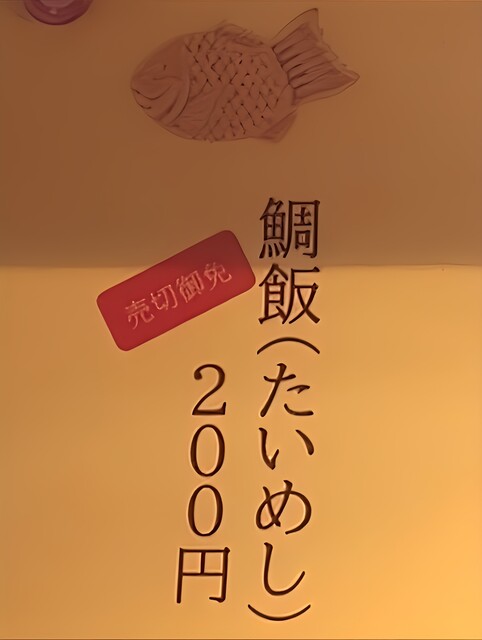 鯛飯(たいめし)
200円
売切御免